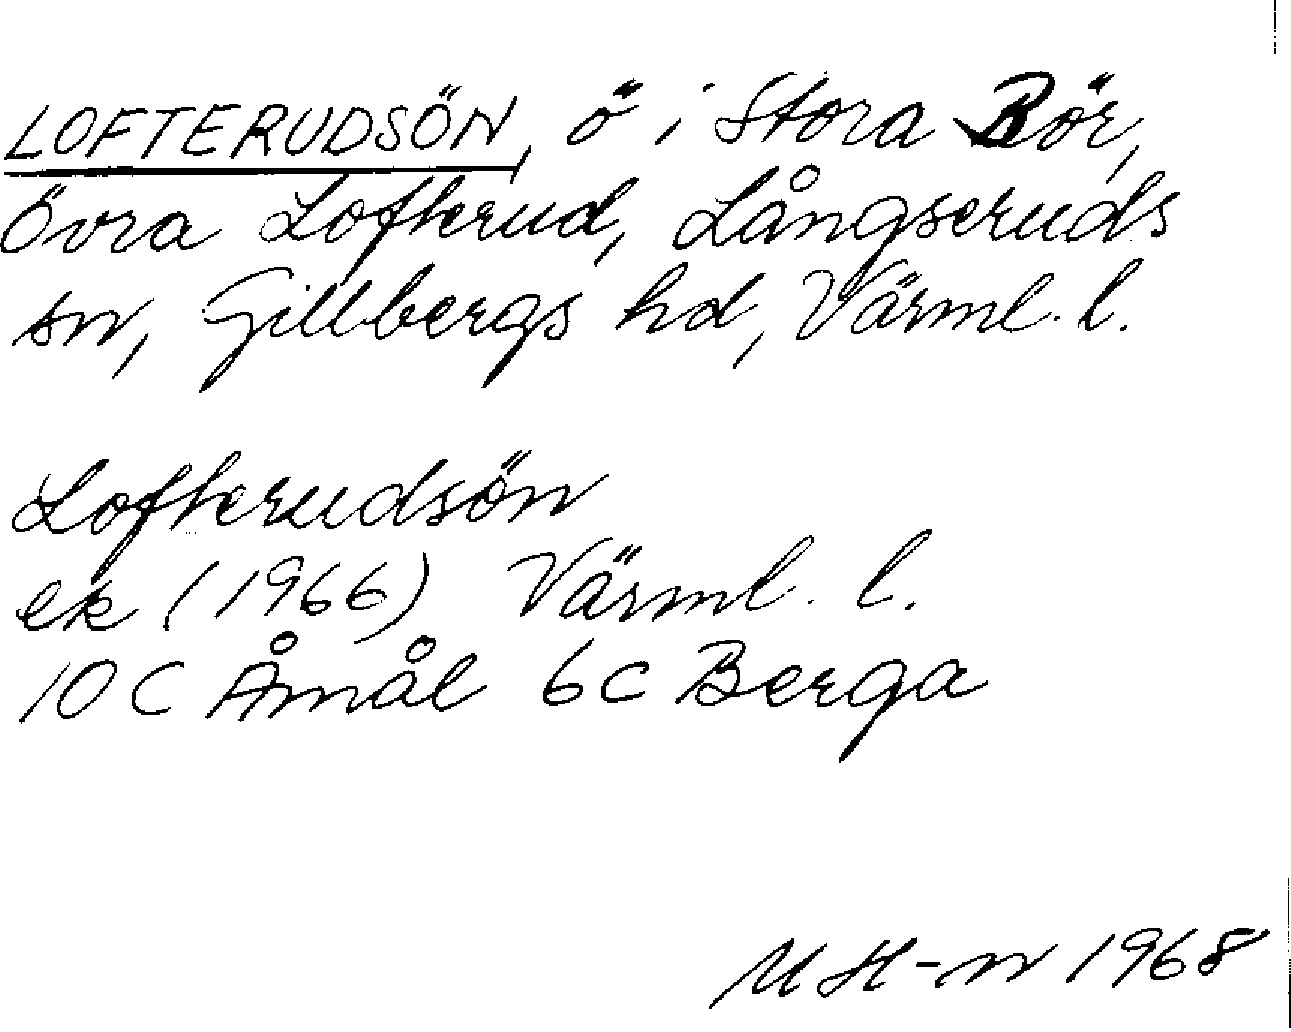 LOFTERUDSÖN, ö i Stora Bör,
Övra Lofterud, Långseruds
sn, Gillbergs hd, Värml. l.
Lofterudsön
ek (1966) Värml. l.
10 C Åmål 6 c Berga
M H-n 1968